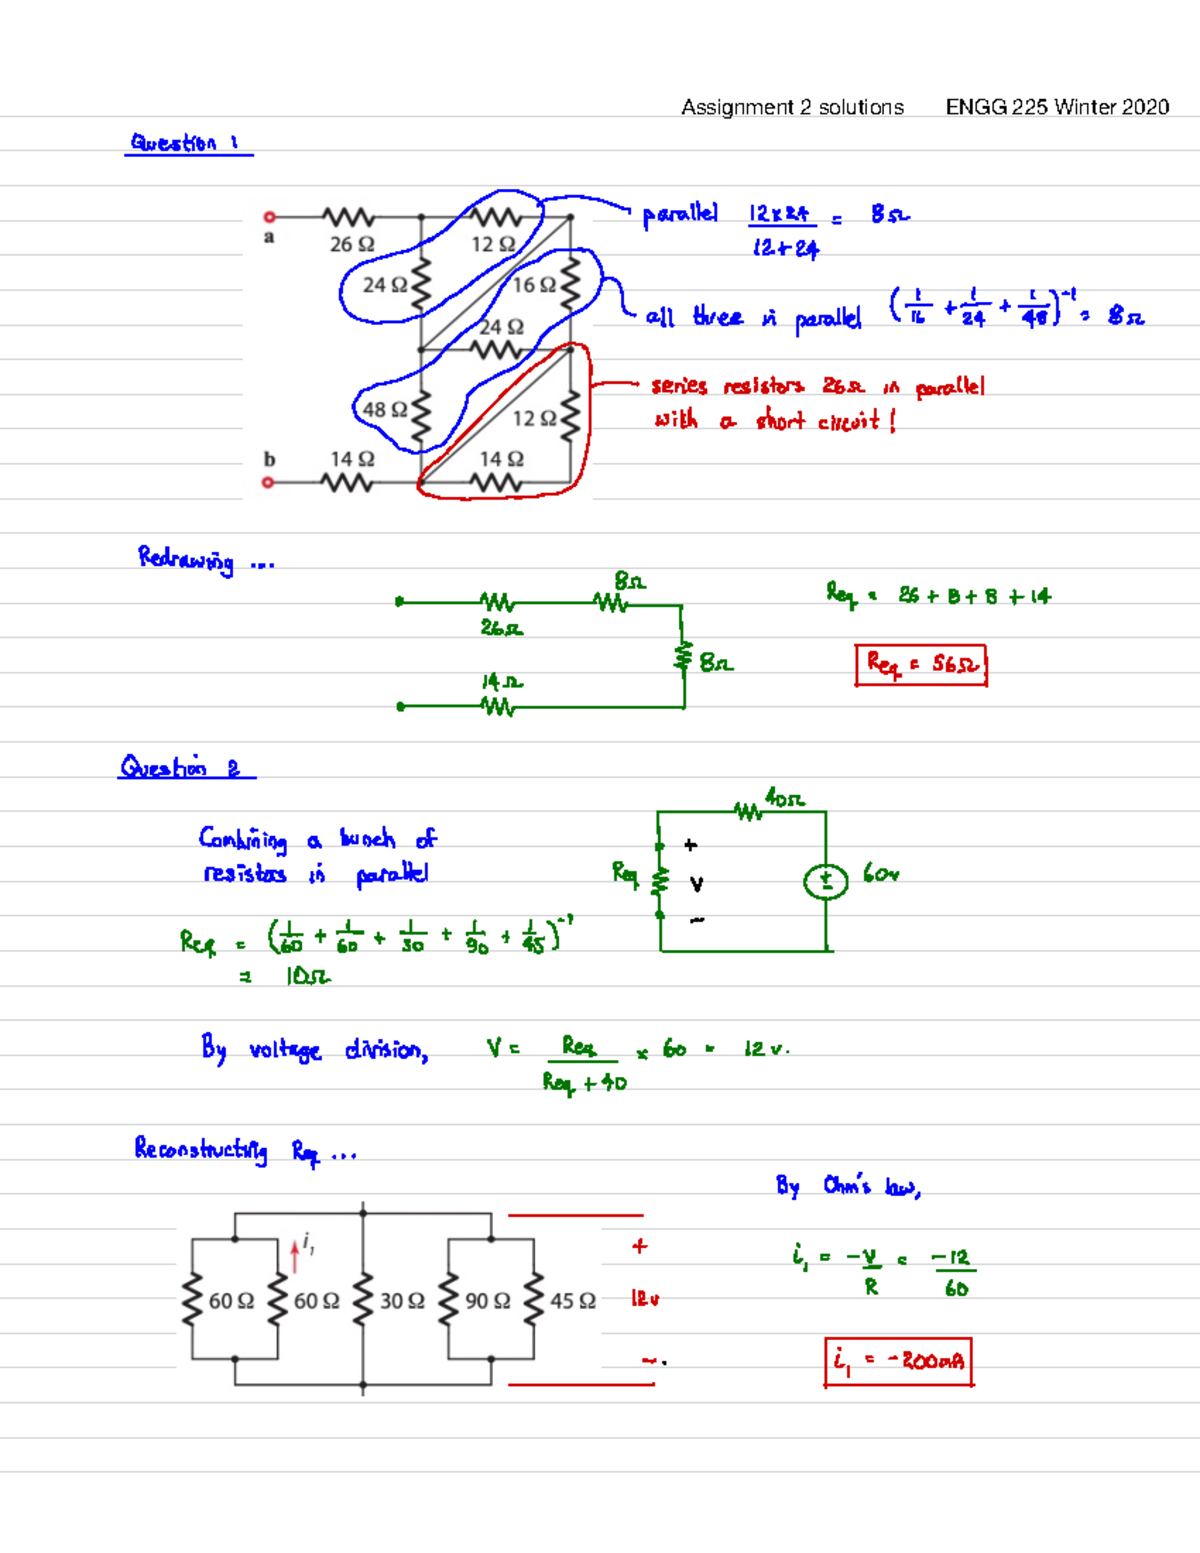 Assignment 2 solutions ENGG 225 Winter 2020
Question 1
a
26 Ω
12 Ω
24 Ω
16 Ω
24 Ω
48 Ω
12 Ω
b
14 Ω
14 Ω
parallel 12x24 / 12+24 = 8Ω
all three in parallel (1/16 + 1/24 + 1/48)^-1 = 8Ω
series resistors 26Ω in parallel
with a short circuit!
Redrawing ...
8Ω
26Ω
8Ω
14Ω
Req = 26 + 8 + 8 + 14
Req = 56Ω
Question 2
Combining a bunch of
resistors in parallel
Req = (1/60 + 1/60 + 1/30 + 1/90 + 1/45)^-1
= 10Ω
40Ω
+
Req
V
-
+
-
60v
By voltage division, V = Req / Req + 40 x 60 = 12 v.
Reconstructing Req ...
i₁
60 Ω
60 Ω
30 Ω
90 Ω
45 Ω
+
12v
-
By Ohm's law,
i₁ = -V/R = -12/60
i₁ = -200mA